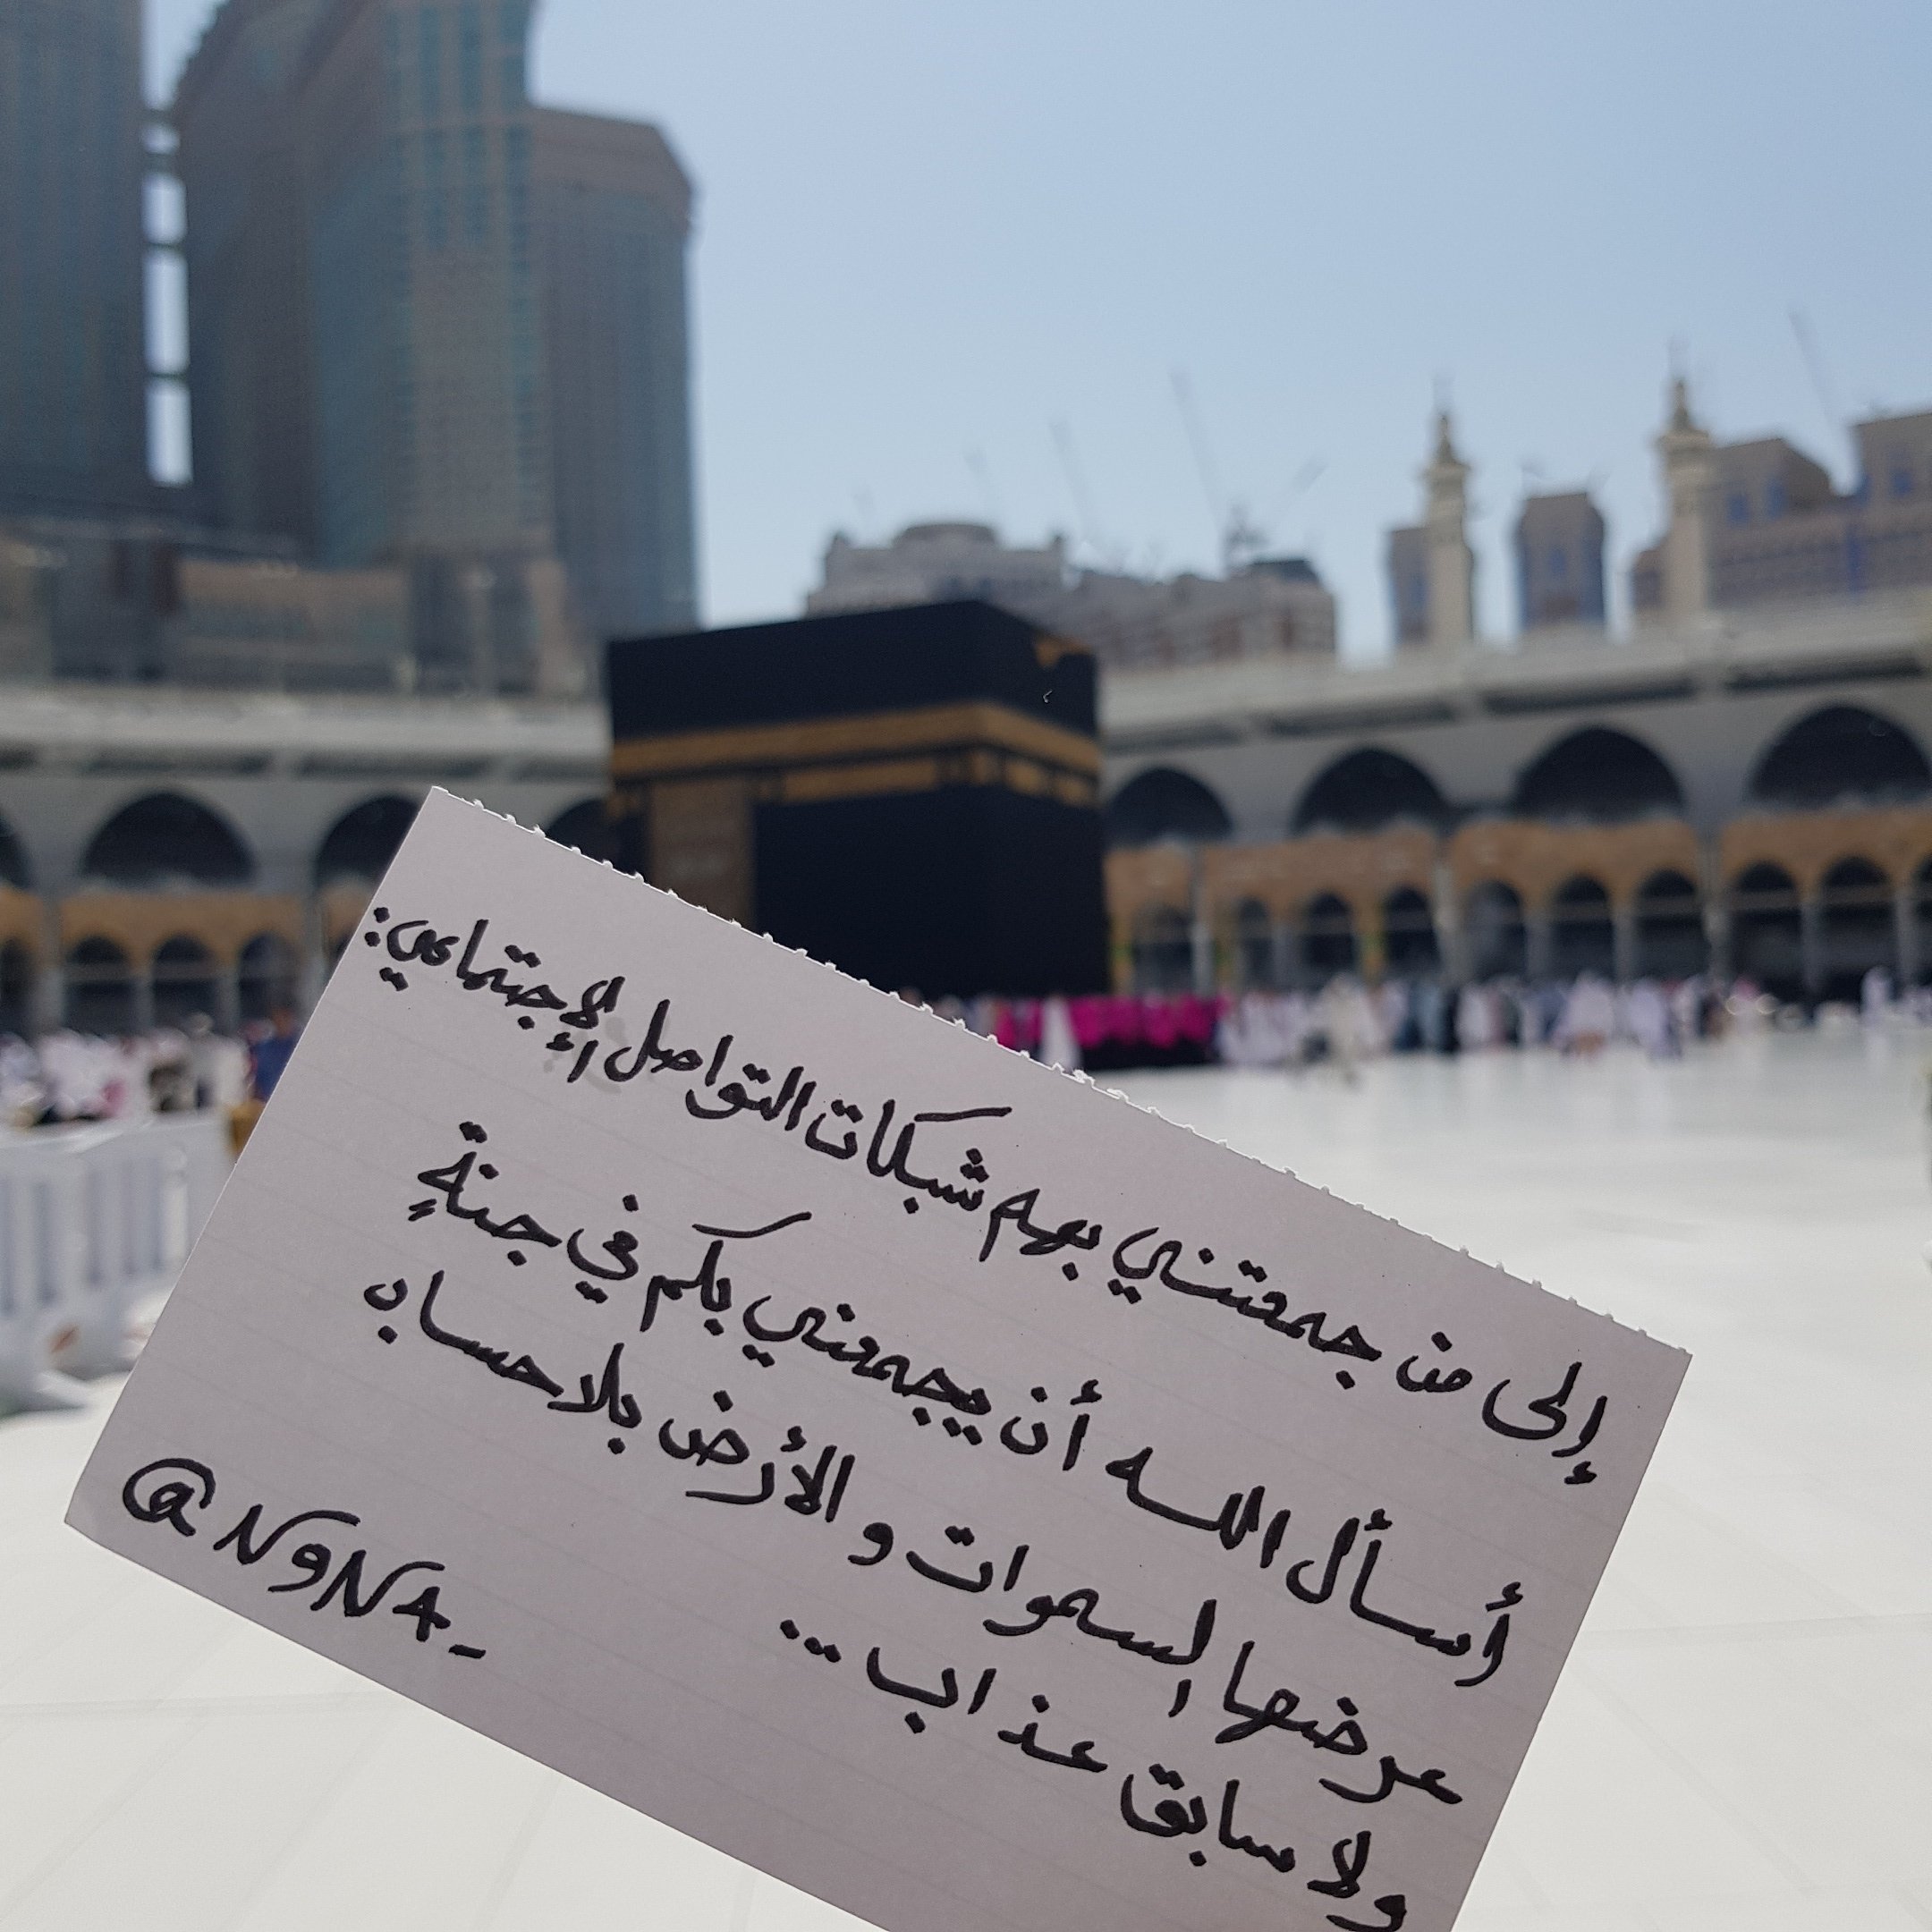 إلى من جمعتني بهم شبكات التواصل الإجتماعي:
أسأل الله أن يجمعني بكم في جنةٍ
عرضها السموات و الأرض بلا حساب
ولا سابق عذاب ...
@NoNA_